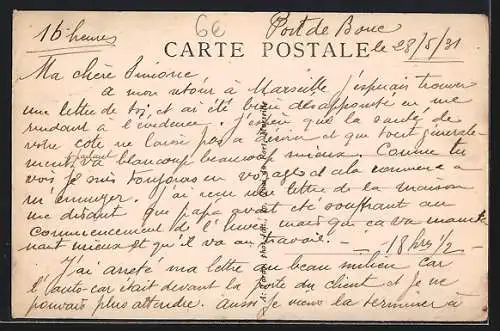 16 heures
6€
Port de Bouc
CARTE POSTALE
le 28/5/31
Ma chère Simone
a mon retour à Marseille j'espérais trouver
une lettre de toi, et ai été bien désappointé en me
rendant a l'évidence. J'espère que la santé de
votre côté ne laisse pas a désirer et que tout
va beaucoup mieux. Comme tu
vois je suis toujours en voyages et cela commence a
m'ennuyer. J'ai reçu une lettre de la maison
me disant que papa avait été souffrant au
commencement de l' mais que ça va mainte
nant mieux et qu'il va au travail. —
— 18 hrs 1/2 —
J'ai arrêté ma lettre au beau milieu car
l'auto-car était devant la porte du client et je ne
pouvais plus attendre. aussi je viens la terminer à